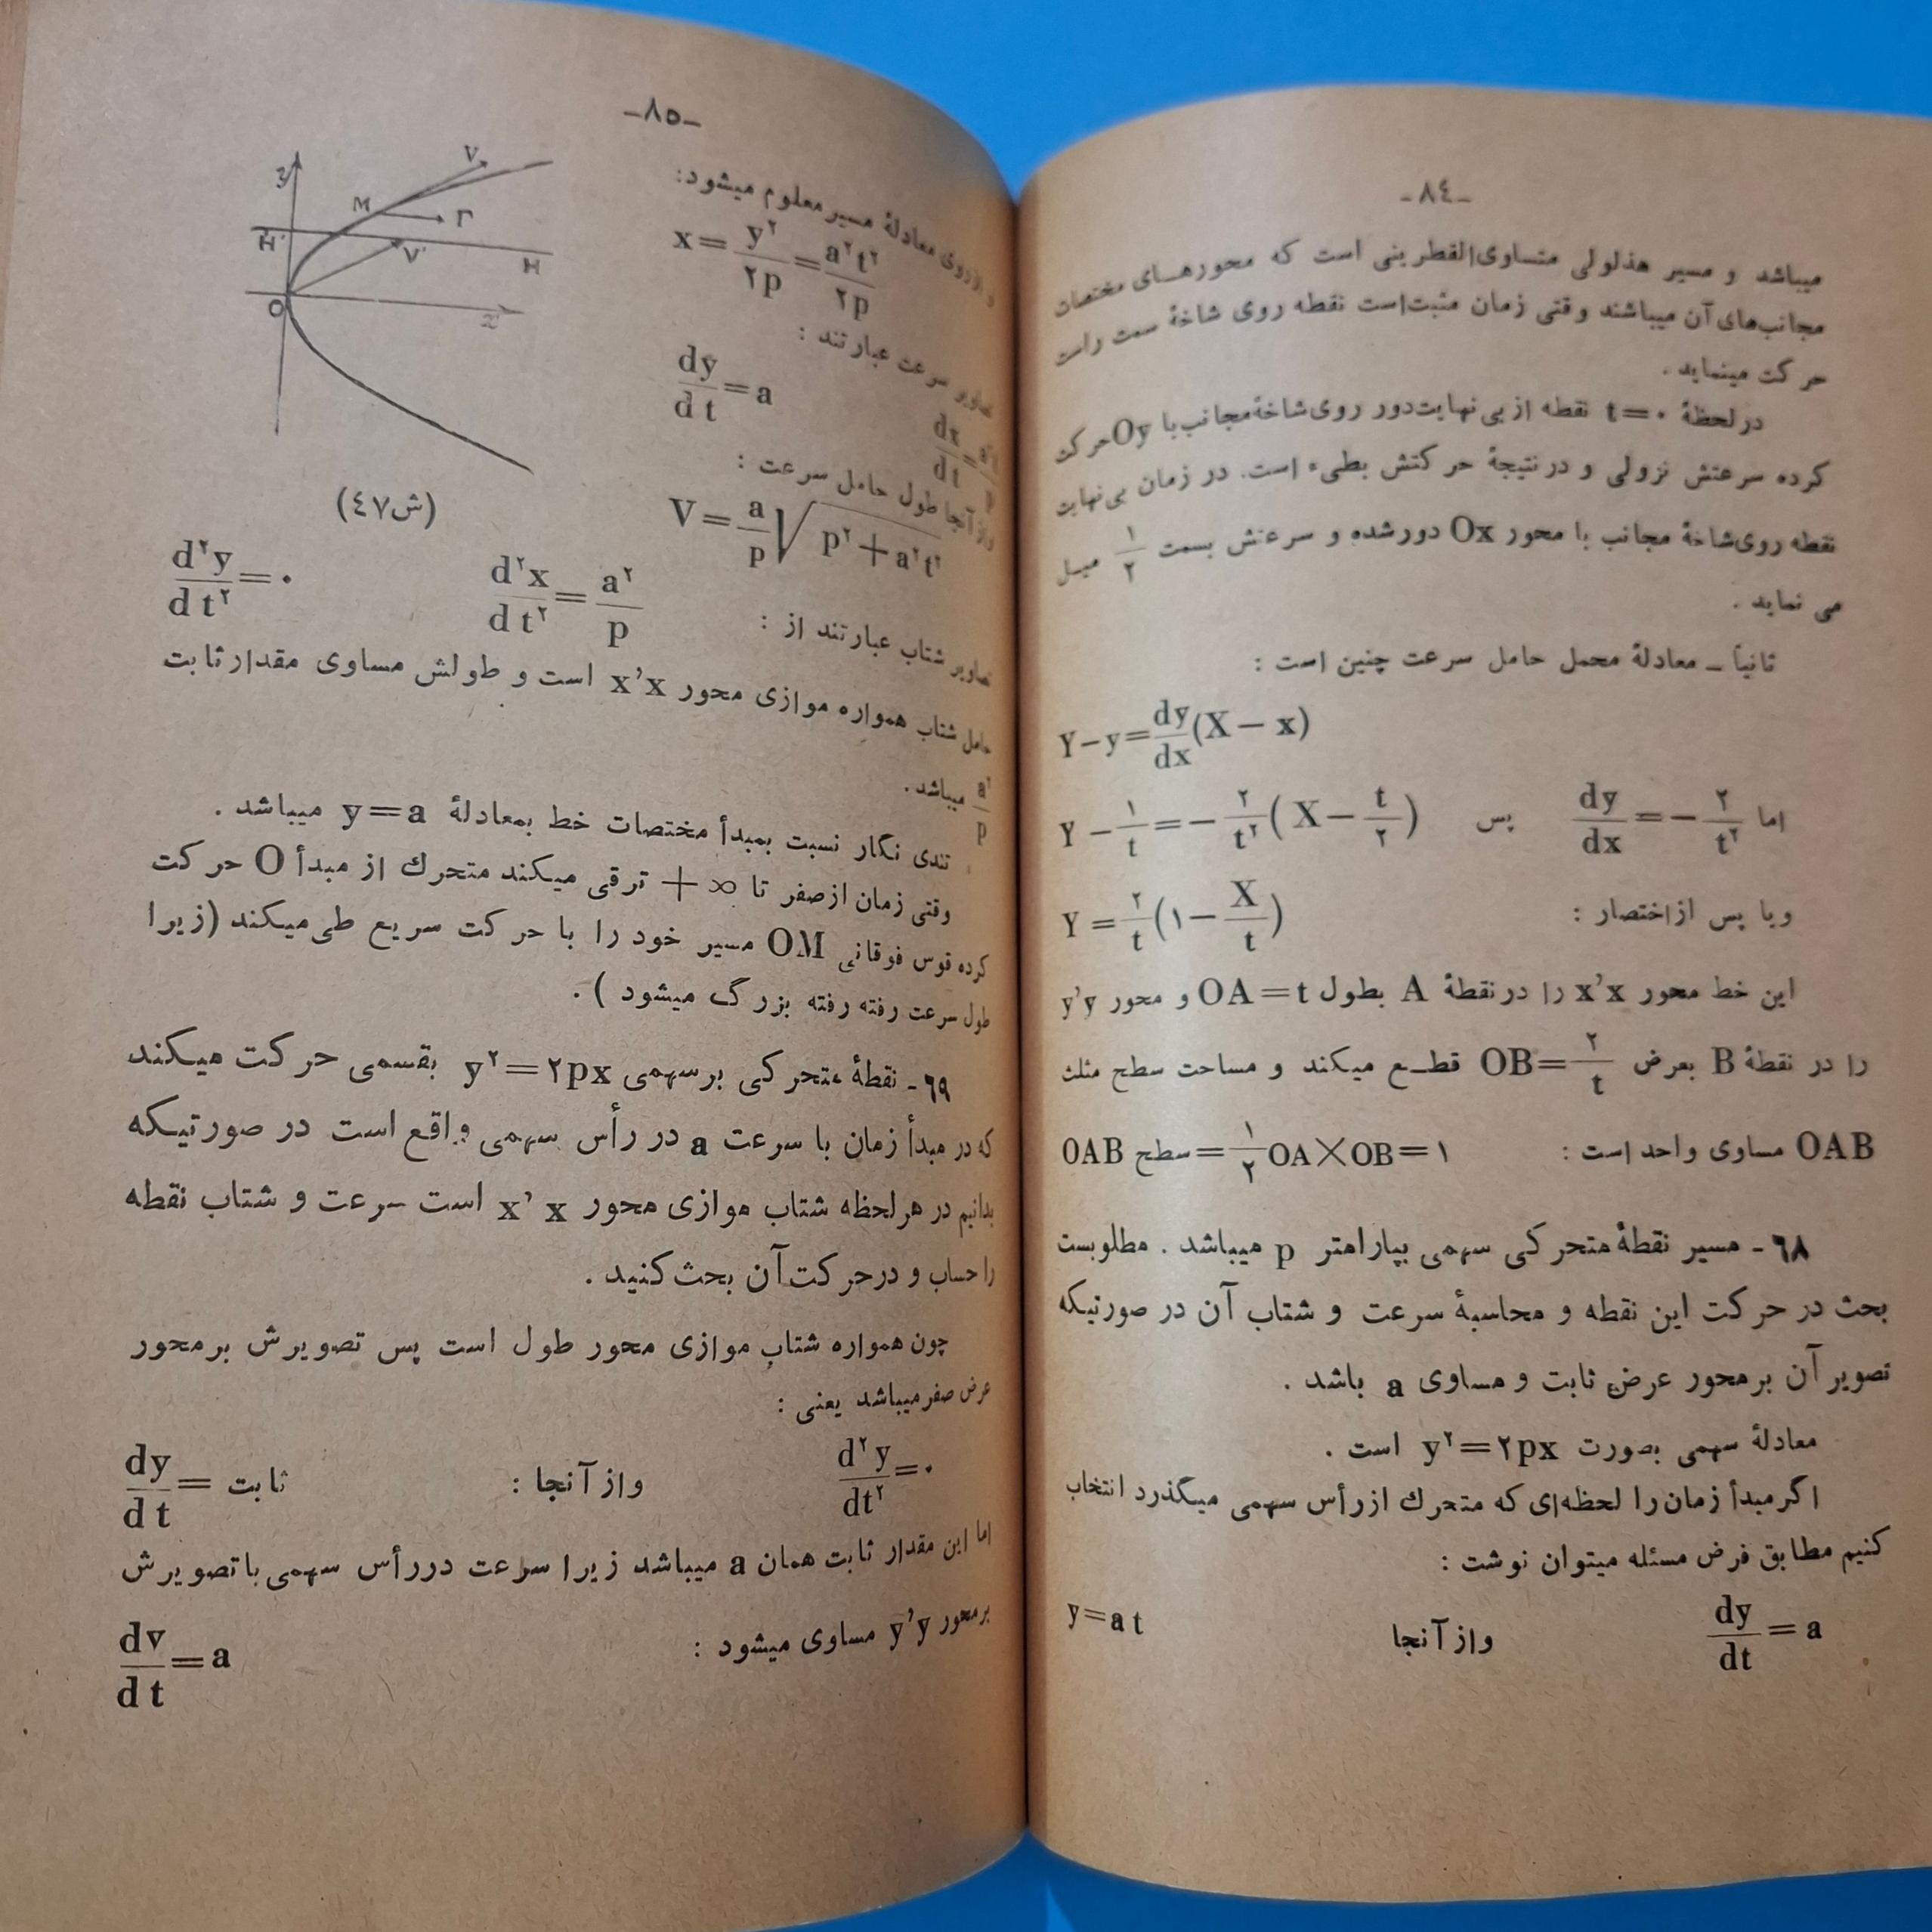 -٨٤-
میباشد و مسیر هذلولی متساوی‌القطرینی است که محورهــای مختصات
مجانب‌های آن میباشند وقتی زمان مثبت‌است نقطه روی شاخهٔ سمت راست
حرکت مینماید .
در لحظهٔ t=۰ نقطه از بی‌نهایت دور روی شاخهٔ مجانب با Oy حرکت
کرده سرعتش نزولی و در نتیجهٔ حرکتش بطیء است. در زمان بی‌نهایت
نقطه روی شاخهٔ مجانب با محور Ox دور شده و سرعتش بسمت ۱/۲ میـل
می نماید .
ثانیاً ــ معادلهٔ محمل حامل سرعت چنین است :
Y−y=dy/dx(X−x)
اما dy/dx=−۲/t۲ پس Y−۱/t=−۲/t۲(X−t/۲)
و یا پس از اختصار : Y=۲/t(۱−X/t)
این خط محور x'x را در نقطهٔ A بطول OA=t و محور y'y
را در نقطهٔ B بعرض OB=۲/t قطــع میکند و مساحت سطح مثلث
OAB مساوی واحد است : OAB سطح=۱/۲OA×OB=۱
۶۸ - مسیر نقطهٔ متحرکی سهمی بپارامتر p میباشد . مطلوبست
بحث در حرکت این نقطه و محاسبهٔ سرعت و شتاب آن در صورتیکه
تصویر آن بر محور عرض ثابت و مساوی a باشد .
معادلهٔ سهمی بصورت y۲=۲px است .
اگر مبدأ زمان را لحظه‌ای که متحرك از رأس سهمی میگذرد انتخاب
کنیم مطابق فرض مسئله میتوان نوشت :
dy/dt=a و از آنجا y=at
-٨٥-
و از روی معادلهٔ مسیر معلوم میشود:
x=y۲/۲p=a۲t۲/۲p
تصاویر سرعت عبارتند :
dy/dt=a dx/dt=
و از آنجا طول حامل سرعت :
V=a/p√p۲+a۲t۲
y
V
M
Γ
H'
V'
H
O
x
(ش٤٧)
تصاویر شتاب عبارتند از :
d۲x/dt۲=a۲/p d۲y/dt۲=۰
حامل شتاب همواره موازی محور x'x است و طولش مساوی مقدار ثابت
a۲/p میباشد .
تندی نگار نسبت بمبدأ مختصات خط بمعادلهٔ y=a میباشد .
وقتی زمان از صفر تا ∞+ ترقی میکند متحرك از مبدأ O حرکت
کرده قوس فوقانی OM مسیر خود را با حرکت سریع طی میکند (زیرا
طول سرعت رفته رفته بزرگ میشود ) .
۶۹- نقطهٔ متحرکی بر سهمی y۲=۲px بقسمی حرکت میکند
که در مبدأ زمان با سرعت a در رأس سهمی واقع است در صورتیکه
بدانیم در هر لحظه شتاب موازی محور x'x است سرعت و شتاب نقطه
را حساب و در حرکت آن بحث کنید .
چون همواره شتاب موازی محور طول است پس تصویرش بر محور
عرض صفر میباشد یعنی :
d۲y/dt۲=۰ و از آنجا : ثابت =dy/dt
اما این مقدار ثابت همان a میباشد زیرا سرعت در رأس سهمی با تصویرش
بر محور y'y مساوی میشود : dv/dt=a